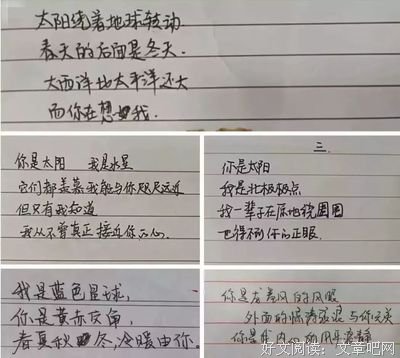 太阳绕着地球转动.
春天的后面是冬天.
大西洋比太平洋还大
而你在想我.
你是太阳 我是水星
它们都羡慕我能与你咫尺远近
但只有我知道
我从不曾真正接近你的心.
三.
你是太阳
我是北极极点
我一辈子在原地绕圈圈
也得不到你的正眼.
我是蓝色星球,
你是黄赤交角,
春夏秋冬,冷暖由你.
你是龙卷风的风眼
外面的惊涛骇浪与你无关
你是我内心的
好文阅读:「文章吧网」